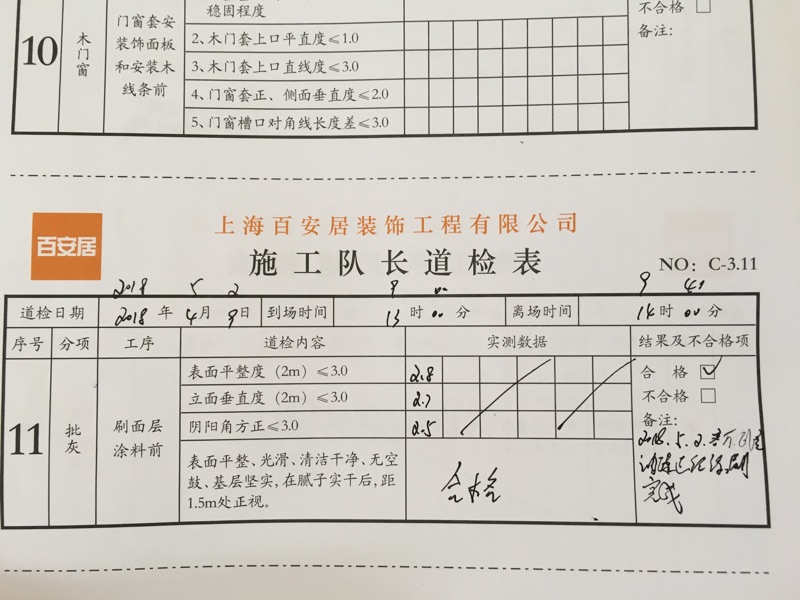 稳固程度
10 木门窗
门窗套安
装饰面板
和安装木
线条前
2、木门套上口平直度≤1.0
3、木门套上口直线度≤3.0
4、门窗套正、侧面垂直度≤2.0
5、门窗槽口对角线长度差≤3.0
不合格 □
备注:
百安居
上海百安居装饰工程有限公司
施工队长道检表
NO: C-3.11
2018 5 2 9 00 9 40
道检日期 2018 年 4 月 9 日 到场时间 13 时 00 分 离场时间 14 时 00 分
序号 分项 工序 道检内容 实测数据 结果及不合格项
11 批灰
刷面层
涂料前
表面平整度（2m）≤3.0 2.8
立面垂直度（2m）≤3.0 2.7
阴阳角方正≤3.0 2.5
表面平整、光滑、清洁干净、无空
鼓、基层坚实,在腻子实干后,距
1.5m处正视。
合格
合 格 ☑
不合格 □
备注:
2018.5.2.
完成